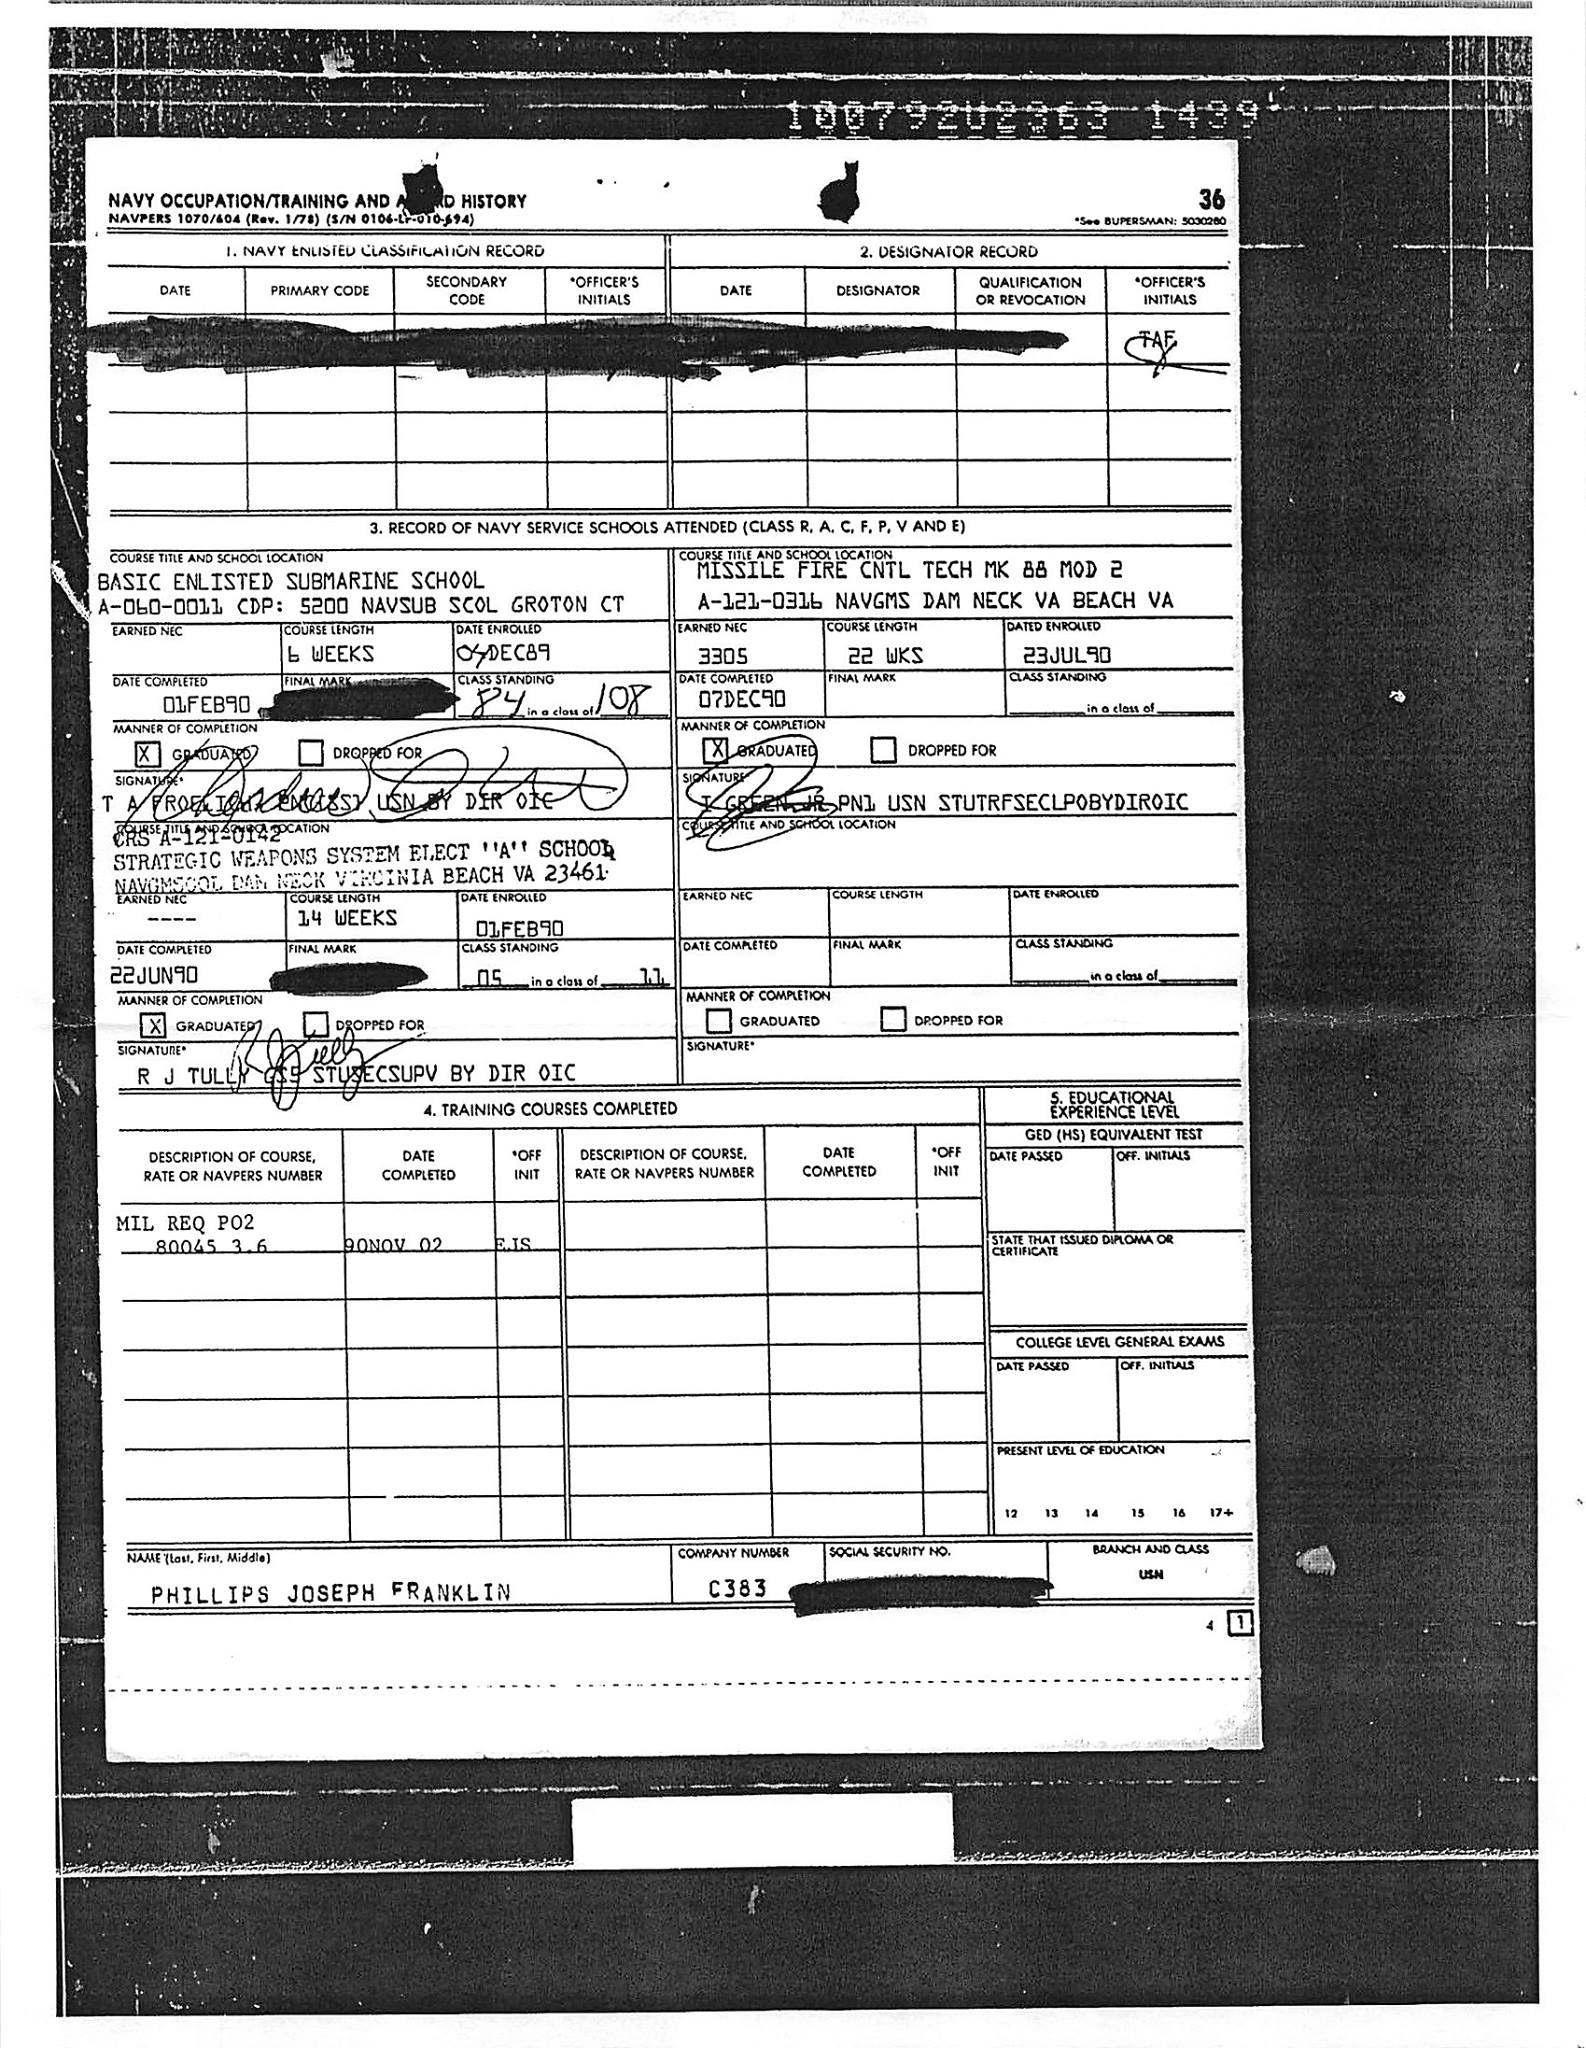 10079202363 1439
NAVY OCCUPATION/TRAINING AND A RD HISTORY
36
NAVPERS 1070/604 (Rev. 1/78) (S/N 0106-LF-010-694)
*See BUPERSMAN: 5030280
1. NAVY ENLISTED CLASSIFICATION RECORD
2. DESIGNATOR RECORD
DATE PRIMARY CODE SECONDARY CODE *OFFICER'S INITIALS DATE DESIGNATOR QUALIFICATION OR REVOCATION *OFFICER'S INITIALS
TAF
3. RECORD OF NAVY SERVICE SCHOOLS ATTENDED (CLASS R, A, C, F, P, V AND E)
COURSE TITLE AND SCHOOL LOCATION
BASIC ENLISTED SUBMARINE SCHOOL
A-060-0011 CDP: 5200 NAVSUB SCOL GROTON CT
EARNED NEC COURSE LENGTH DATE ENROLLED
6 WEEKS 04DEC89
DATE COMPLETED FINAL MARK CLASS STANDING
01FEB90 84 in a class of 108
MANNER OF COMPLETION
X GRADUATED DROPPED FOR
SIGNATURE*
T A FROELICH USN BY DIR OIC
COURSE TITLE AND SCHOOL LOCATION
MISSILE FIRE CNTL TECH MK 88 MOD 2
A-121-0316 NAVGMS DAM NECK VA BEACH VA
EARNED NEC COURSE LENGTH DATED ENROLLED
3305 22 WKS 23JUL90
DATE COMPLETED FINAL MARK CLASS STANDING
07DEC90 in a class of
MANNER OF COMPLETION
X GRADUATED DROPPED FOR
SIGNATURE
I GREEN JR PN1 USN STUTRFSECLPOBYDIROIC
COURSE TITLE AND SCHOOL LOCATION
CRS A-121-0142
STRATEGIC WEAPONS SYSTEM ELECT "A" SCHOOL
NAVGMSCOL DAM NECK VIRGINIA BEACH VA 23461
EARNED NEC COURSE LENGTH DATE ENROLLED
---- 14 WEEKS 01FEB90
DATE COMPLETED FINAL MARK CLASS STANDING
22JUN90 05 in a class of 11
MANNER OF COMPLETION
X GRADUATED DROPPED FOR
SIGNATURE*
R J TULLY GS5 STUSECSUPV BY DIR OIC
COURSE TITLE AND SCHOOL LOCATION
EARNED NEC COURSE LENGTH DATE ENROLLED
DATE COMPLETED FINAL MARK CLASS STANDING
in a class of
MANNER OF COMPLETION
GRADUATED DROPPED FOR
SIGNATURE*
4. TRAINING COURSES COMPLETED
DESCRIPTION OF COURSE, RATE OR NAVPERS NUMBER DATE COMPLETED *OFF INIT DESCRIPTION OF COURSE, RATE OR NAVPERS NUMBER DATE COMPLETED *OFF INIT
MIL REQ PO2
80045 3.6 90NOV 02 EJS
5. EDUCATIONAL
EXPERIENCE LEVEL
GED (HS) EQUIVALENT TEST
DATE PASSED OFF. INITIALS
STATE THAT ISSUED DIPLOMA OR
CERTIFICATE
COLLEGE LEVEL GENERAL EXAMS
DATE PASSED OFF. INITIALS
PRESENT LEVEL OF EDUCATION
12 13 14 15 16 17+
NAME (Last, First, Middle) COMPANY NUMBER SOCIAL SECURITY NO. BRANCH AND CLASS
PHILLIPS JOSEPH FRANKLIN C383 USN
4 1